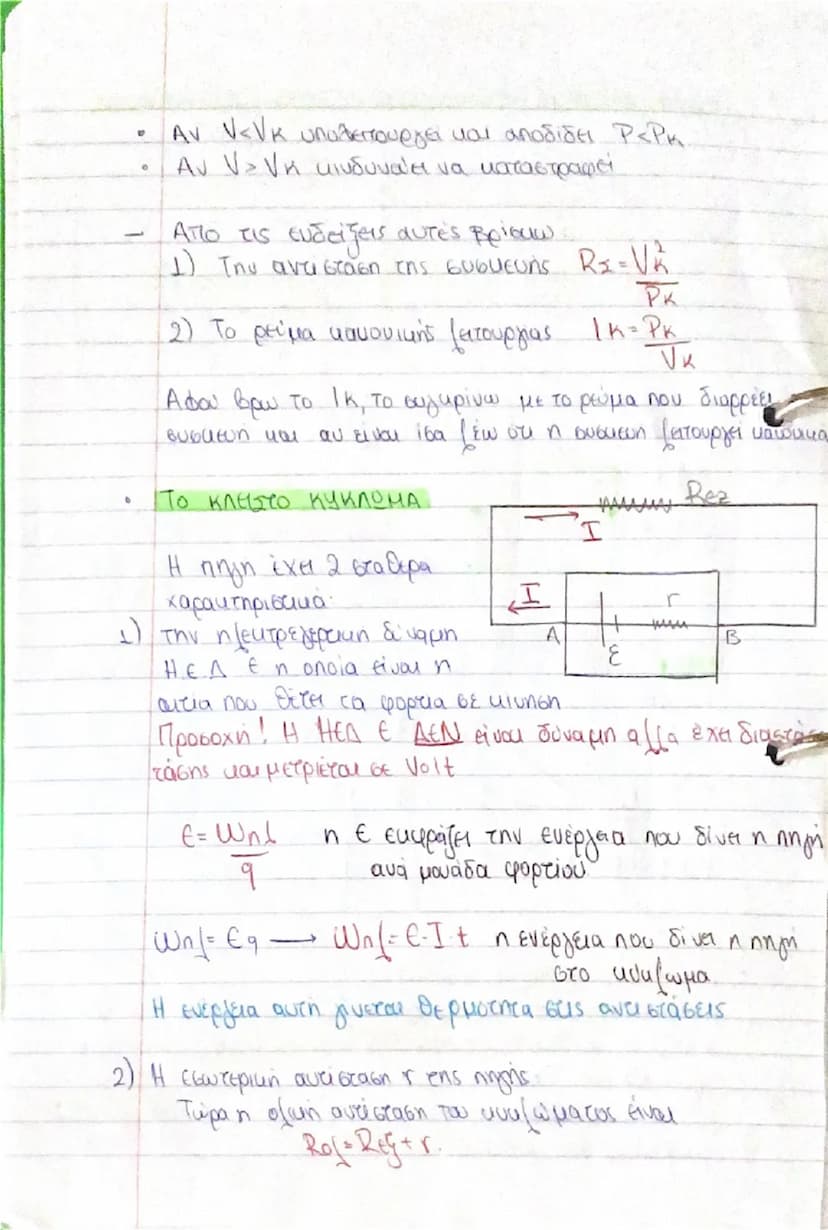 • Αν V<Vκ υπολειτουργεί και αποδίδει P<Pκ
• Αν V>Vκ κινδυνεύει να καταστραφεί
– Απο τις ενδείξεις αυτές βρίσκω
1) Την αντίσταση της συσκευής RΣ=Vκ²/Pκ
2) Το ρεύμα κανονικής λειτουργίας Iκ=Pκ/Vκ
Αφου βρω το Iκ, το συγκρίνω με το ρεύμα που διαρρέει
συσκευή και αν είναι ίσα λέω οτι η συσκευη λειτουργεί κανονικα
• ΤΟ ΚΛΕΙΣΤΟ ΚΥΚΛΩΜΑ
Rεξ
I
Η πηγη έχει 2 σταθερα
χαρακτηριστικά
I
r
A
ε
B
1) την ηλεκτρεγερτικη δύναμη
Η.Ε.Δ Ε η οποία είναι η
αιτία που θέτει τα φορτία σε κίνηση
Προσοχή! Η ΗΕΔ Ε ΔΕΝ είναι δύναμη αλλα έχει διαστάσεις
τάσης και μετριέται σε Volt
Ε=Wηλ/q η Ε εκφράζει την ενέργεια που δίνει η πηγή
ανά μονάδα φορτίου
Wηλ=Εq → Wηλ=Ε·I·t η ενέργεια που δίνει η πηγή
στο κύκλωμα
Η ενέργεια αυτή γίνεται θερμότητα στις αντιστάσεις
2) Η εσωτερική αντίσταση r της πηγής
Τώρα η ολική αντίσταση του κυκλώματος είναι
Rολ=Rεξ+r.